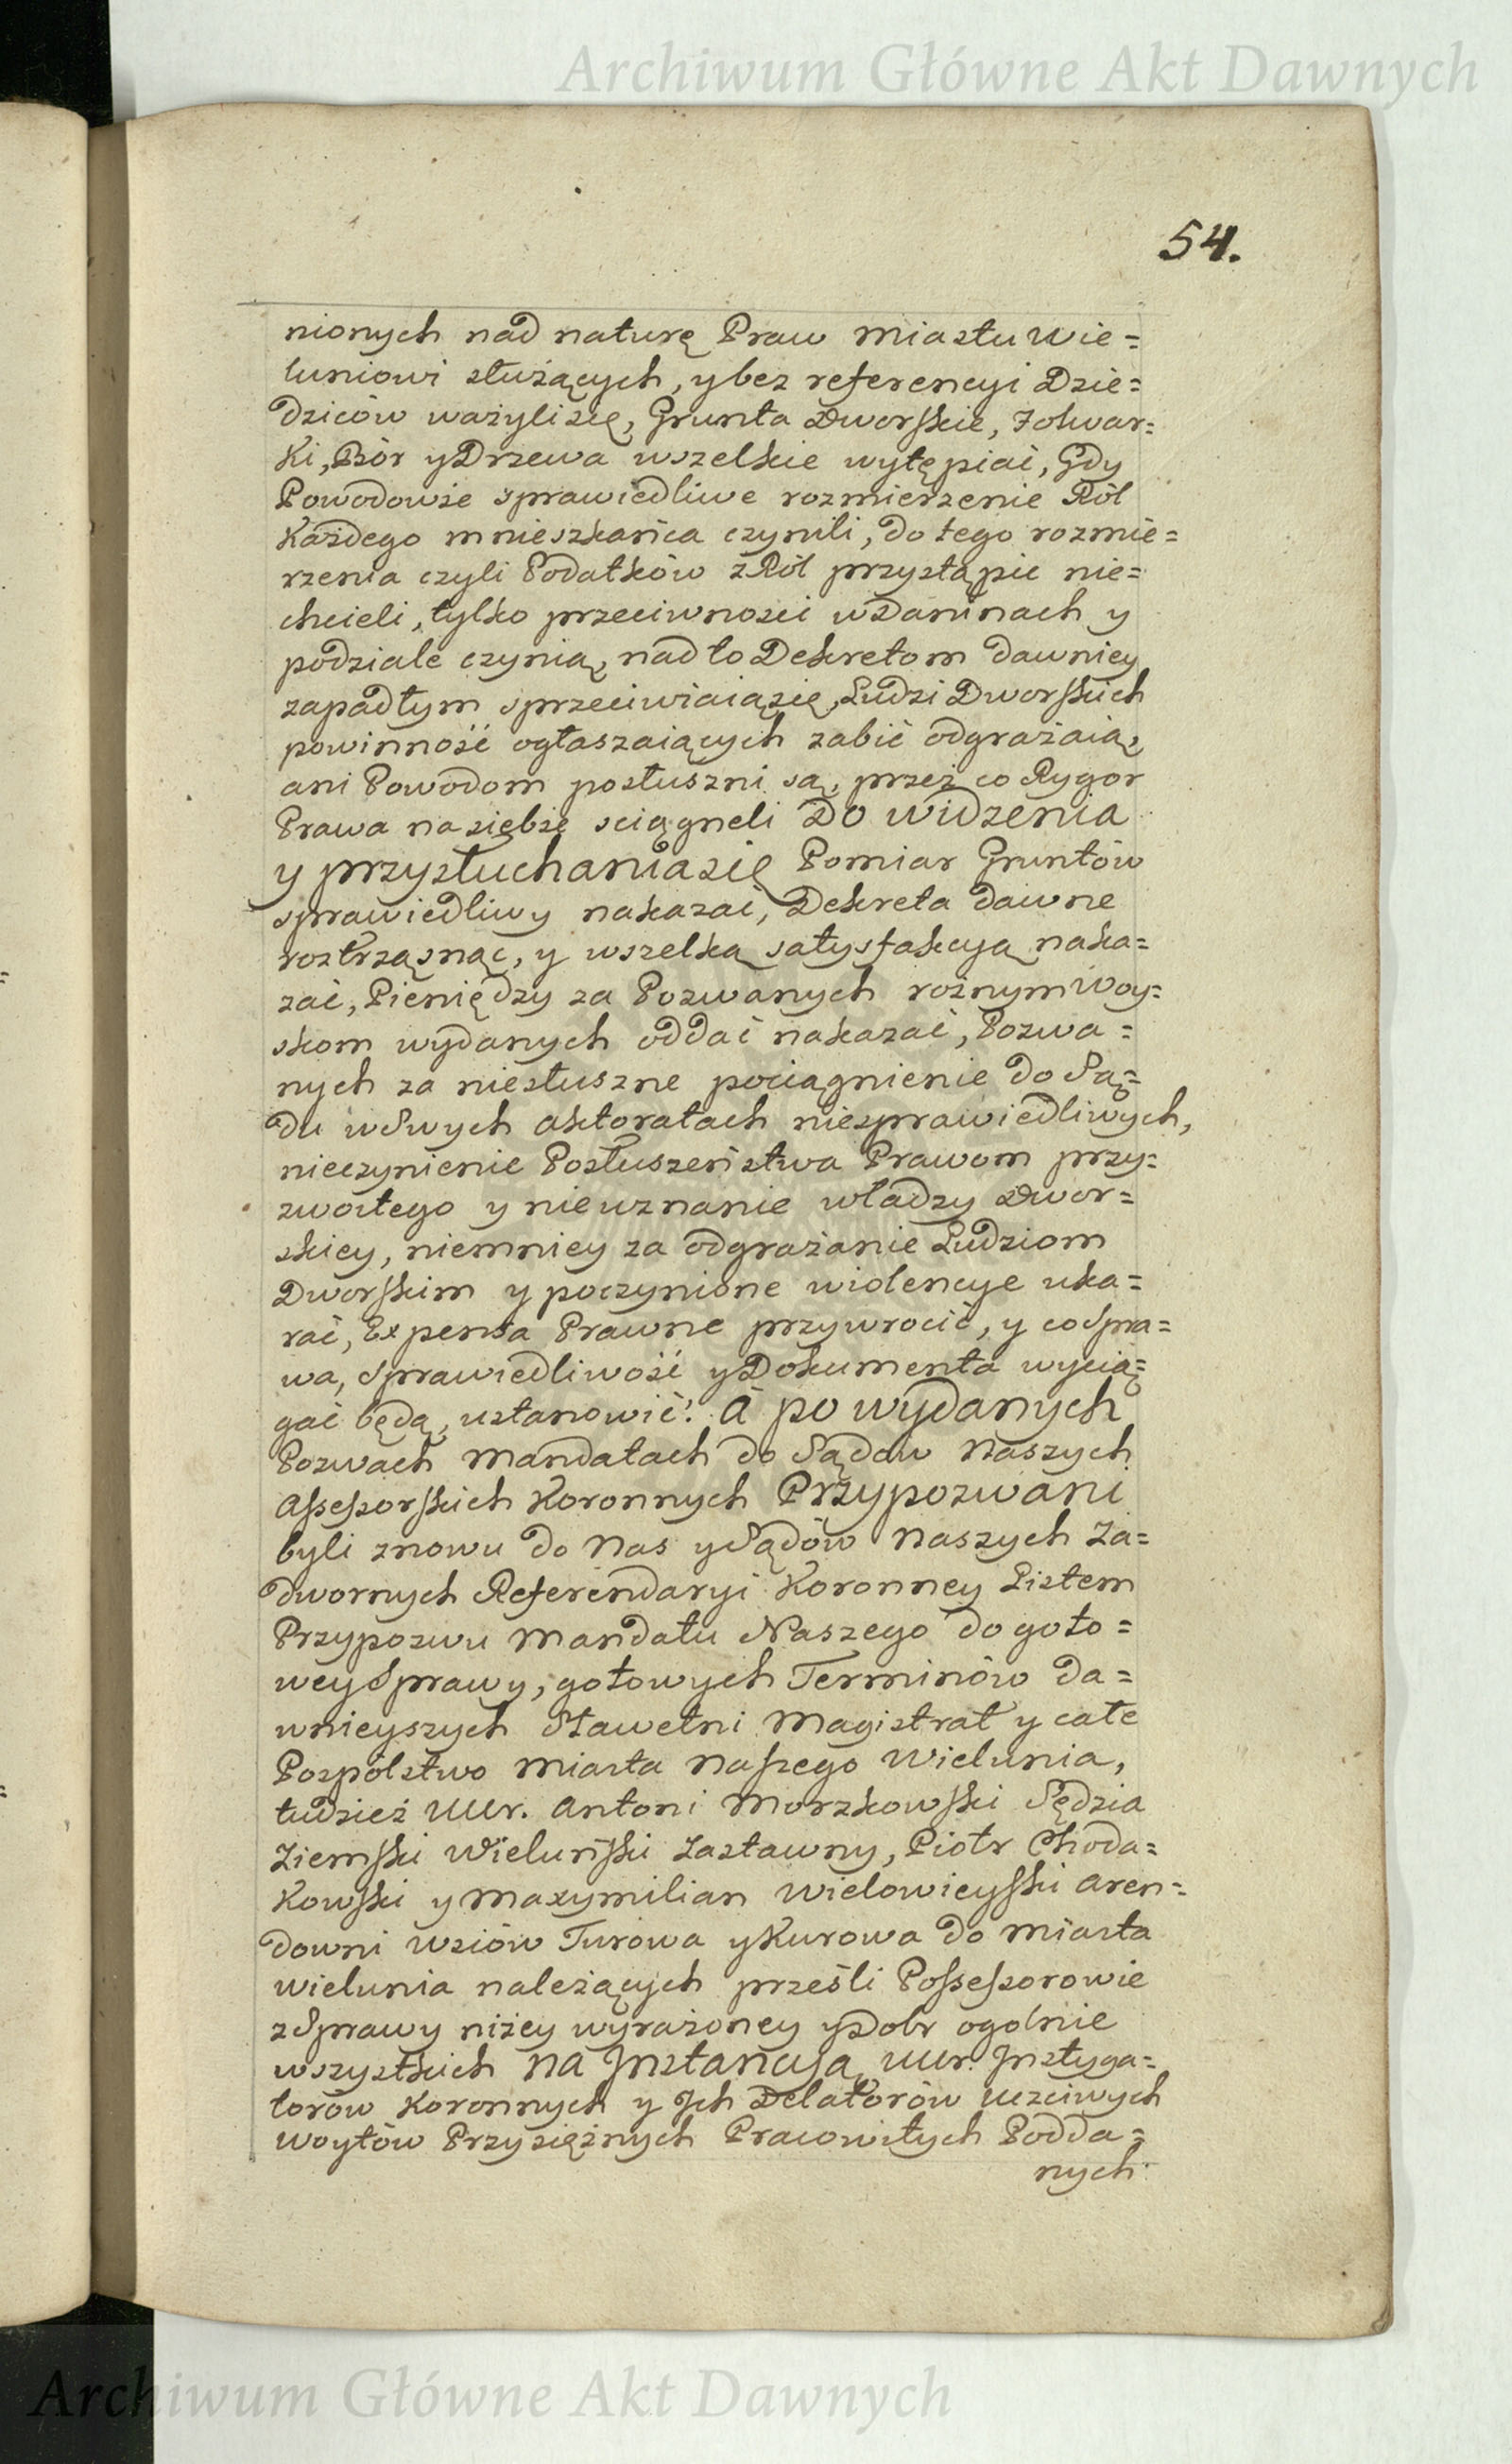 Archiwum Główne Akt Dawnych
54.
nionych nad naturę Praw Miastu Wie=
luniowi służących, y bez referencyi Dzie=
dziców ważyli się, Grunta Dworskie, Folwar=
ki, Bór y Drzewa wszelkie wytępiać, Gdy
Powodowie sprawiedliwe rozmierzenie Ról
Każdego mnieszkańca czynili, do tego rozmie=
rzenia czyli Podatków z Ról przystąpić nie=
chcieli, tylko przeciwności w Daninach y
podziale czynią, nad to Dekretom dawniey
zapadłym sprzeciwiaią się, Ludzi Dworskich
powinność ogłaszaiących zabić odgrażaią,
ani Powodom posłuszni są, przez co Rygor
Prawa na siebie sciągneli Do widzenia
y przysłuchania się Pomiar Gruntów
sprawiedliwy nakazać, Dekreta dawne
roztrząsnąć, y wszelką satysfakcyą naka=
zać, Pieniędzy za Pozwanych rożnym Woy=
skom wydanych oddać nakazać, Pozwa=
nych za niesłuszne pociągnienie do Są=
du w Swych aktoratach niesprawiedliwych,
nieczynienie Posłuszeństwa Prawom przy=
zwoitego y nieuznanie władzy Dwor=
skiey, niemniey za odgrażanie Ludziom
Dworskim y poczynione wiolencye uka=
rać, Expensa Prawne przywrocić, y co Spra=
wa, Sprawiedliwość y Dokumenta wycią=
gać będą, ustanowić. A po wydanych
Pozwach Mandatach do Sądów Naszych
Assessorskich Koronnych Przypozwani
byli znowu do Nas y Sądów Naszych Za=
dwornych Referendaryi Koronney Listem
Przypozwu Mandatu Naszego do goto=
wey Sprawy, gotowych Terminów da=
wnieyszych Sławetni Magistrat y całe
Pospólstwo Miasta Naszego Wielunia,
tudzież UUr. Antoni Morzkowski Sędzia
Ziemski Wieluński Zastawny, Piotr Choda=
kowski y Maxymilian Wielowieyski Aren=
downi Wsiów Turowa y Kurowa do Miasta
Wielunia należących prześli Possessorowie
z Sprawy niżey wyrażoney y Dobr ogolnie
wszystkich na Jnstancyą UUr. Jnstyga=
torów Koronnych y Jch Delatorów Uczciwych
Woytów Przysiężnych Pracowitych Podda=
nych
Archiwum Główne Akt Dawnych